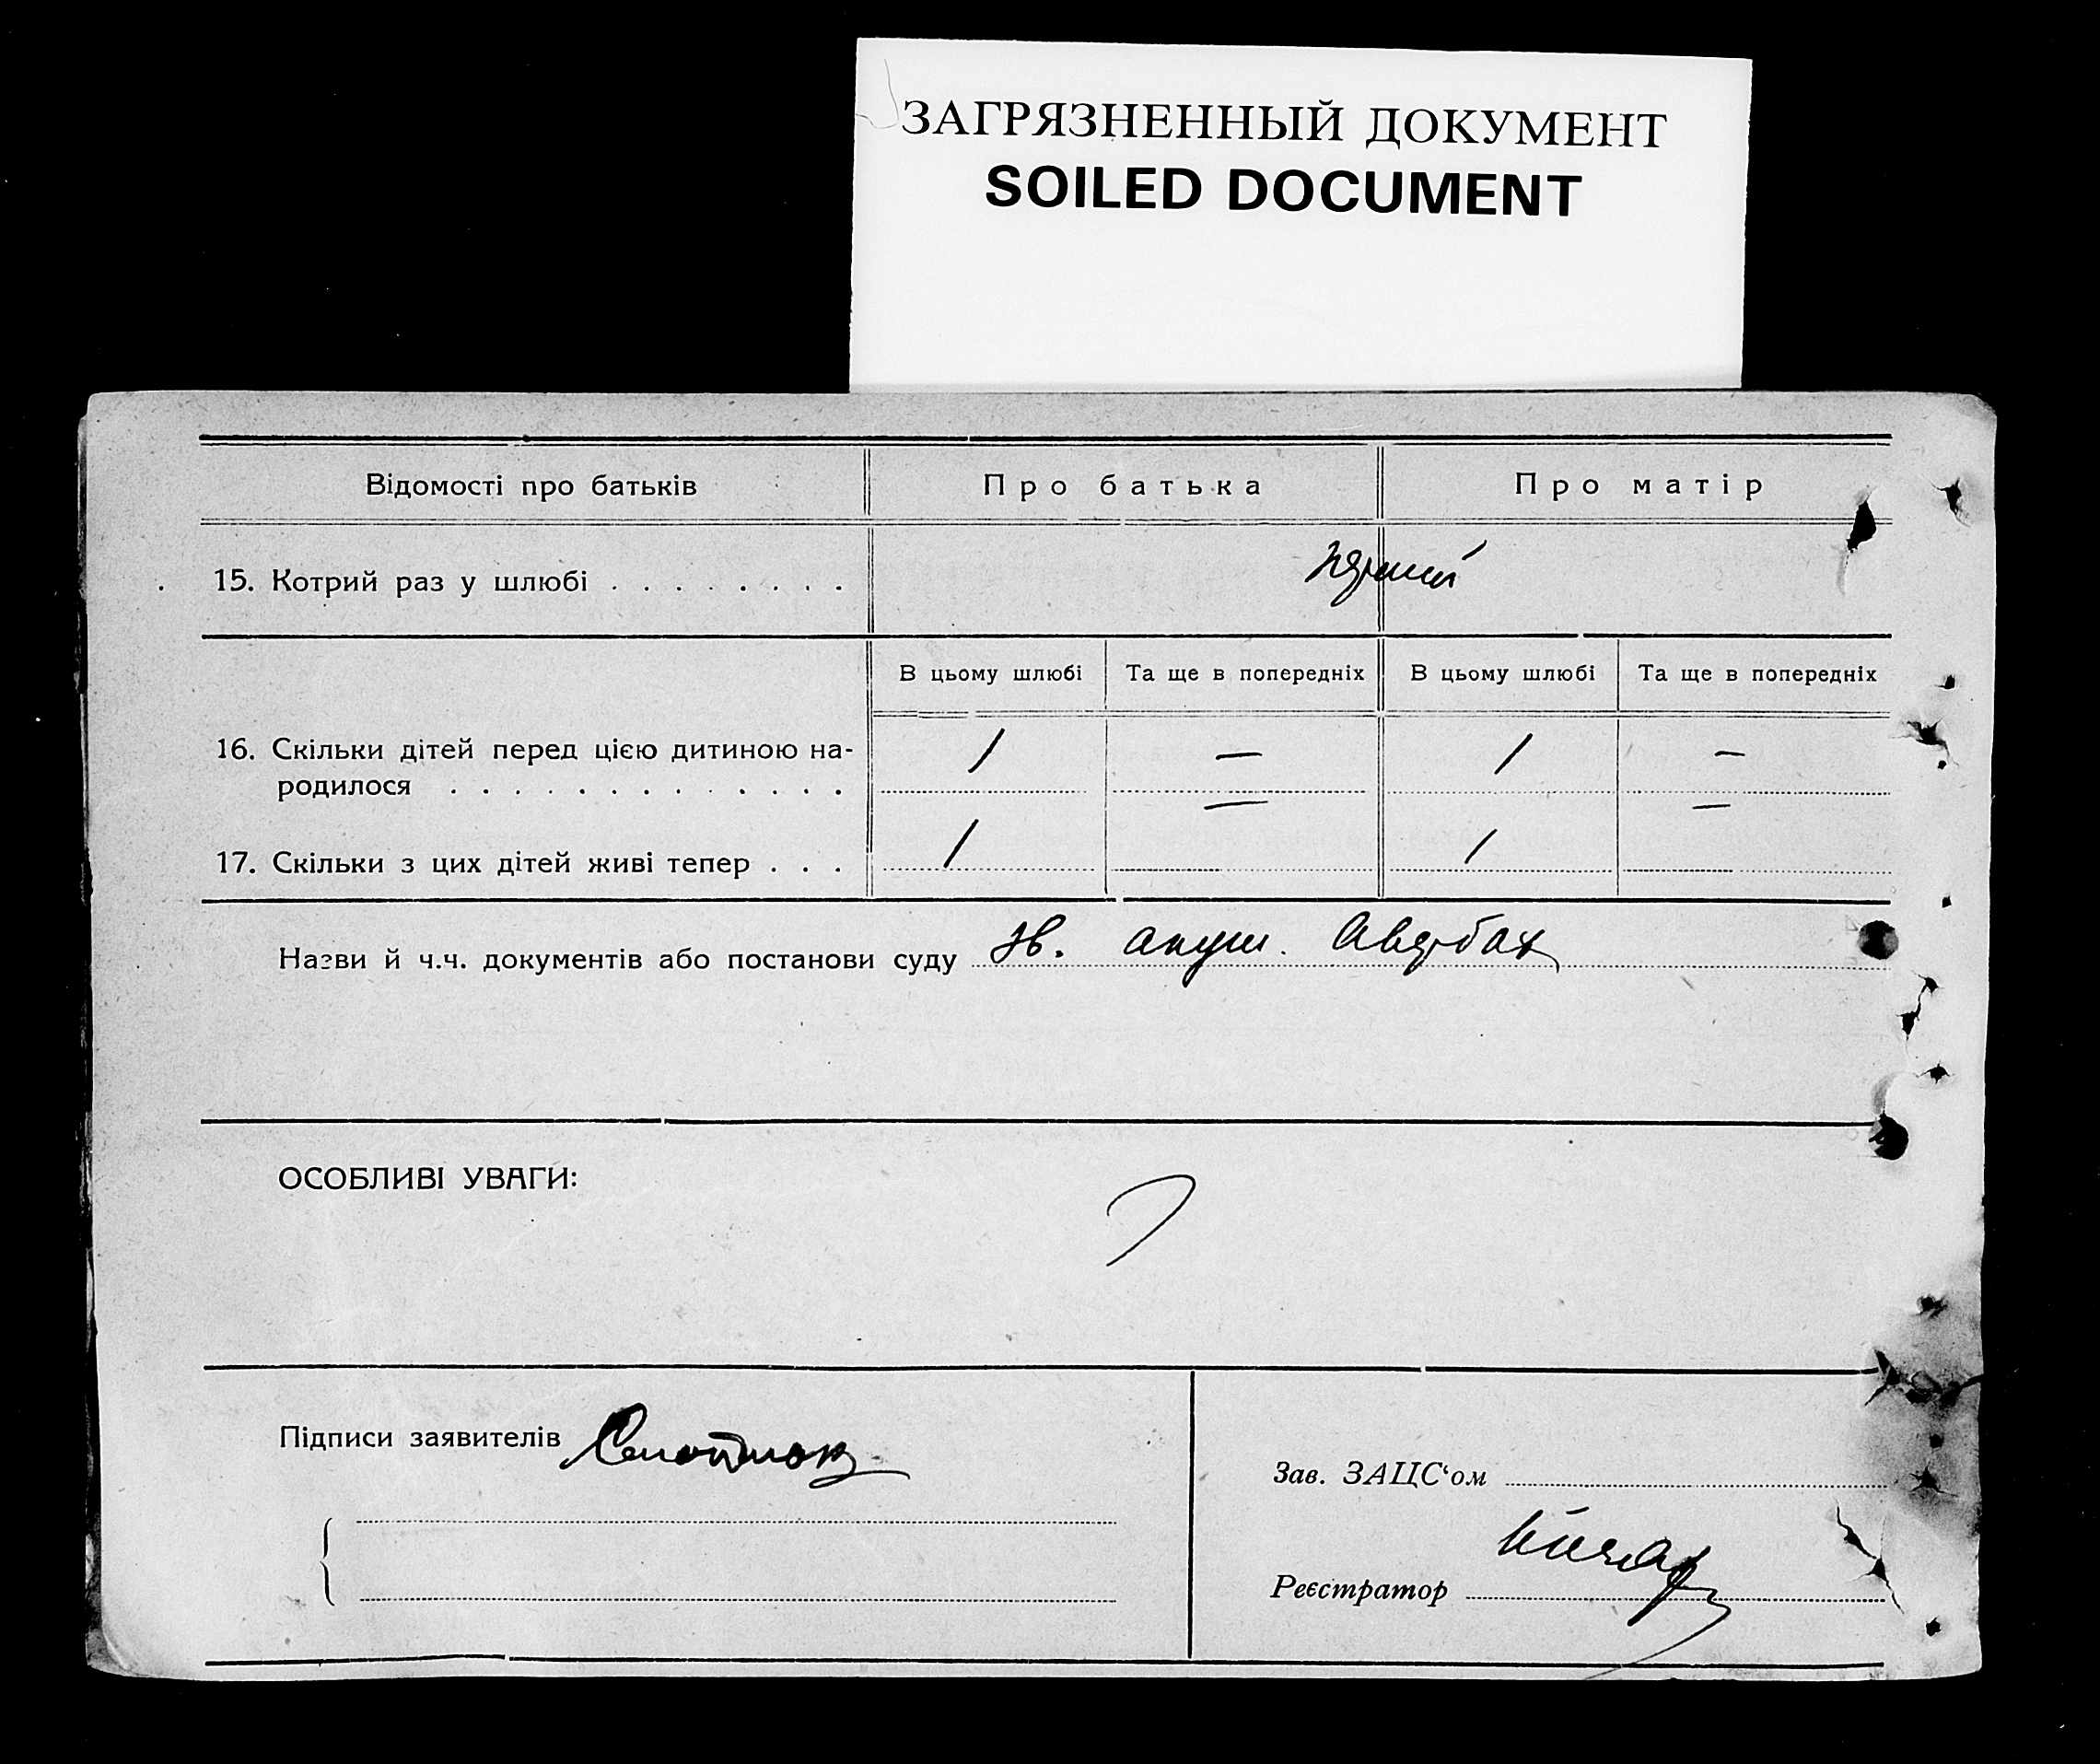 ЗАГРЯЗНЕННЫЙ ДОКУМЕНТ
SOILED DOCUMENT
Відомості про батьків Про батька Про матір
15. Котрий раз у шлюбі . . . . . . . . перший
В цьому шлюбі Та ще в попередніх В цьому шлюбі Та ще в попередніх
16. Скільки дітей перед цією дитиною на-
родилося . . . . . . . . . . . . . 1 — 1 —
17. Скільки з цих дітей живі тепер . . . 1 — 1 —
Назви й ч.ч. документів або постанови суду зв. акуш. Авербах
ОСОБЛИВІ УВАГИ:
Підписи заявителів
Зав. ЗАЦС‘ом
Реєстратор